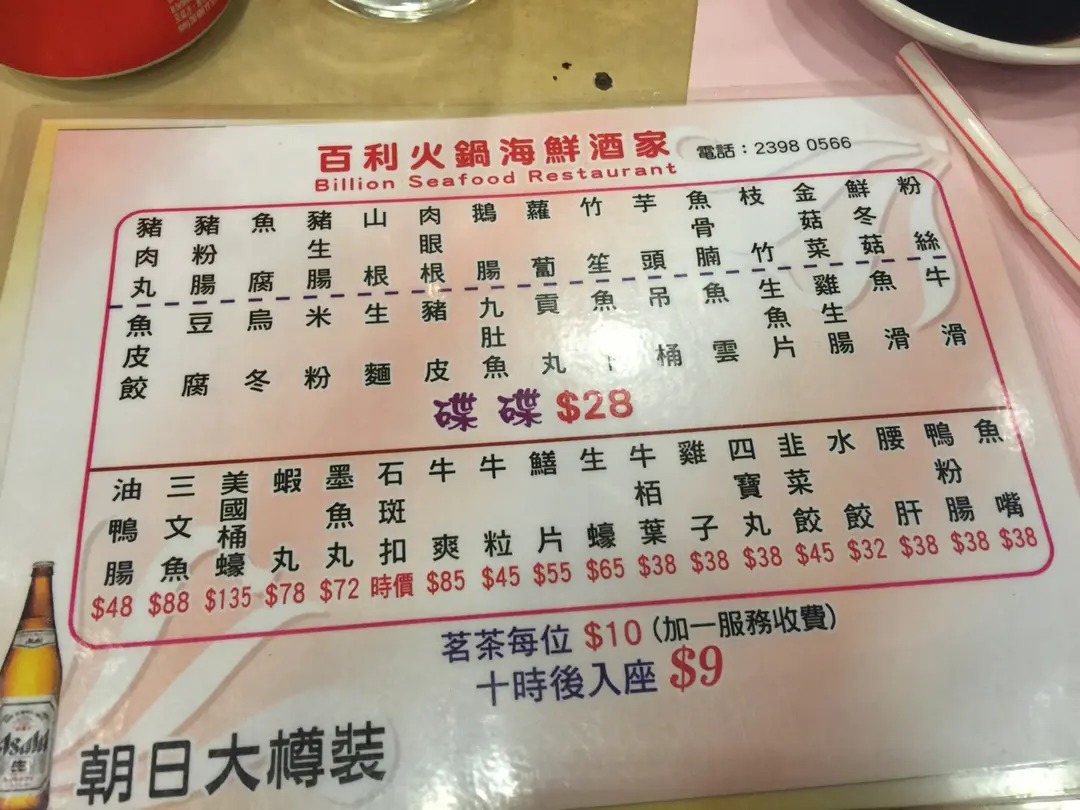 百利火鍋海鮮酒家
電話：2398 0566
Billion Seafood Restaurant
豬肉丸
豬粉腸
魚腐
豬生腸
山根
肉眼根
鵝腸
蘿蔔
竹笙
芋頭
魚骨腩
枝竹
金菇菜
鮮冬菇
粉絲
魚皮餃
豆腐
烏冬
米粉
生麵
豬皮
九肚魚
貢丸
魚
吊桶
魚雲
生魚片
雞生腸
魚滑
牛滑
碟碟 $28
油鴨腸 $48
三文魚 $88
美國桶蠔 $135
蝦丸 $78
墨魚丸 $72
石斑扣 時價
牛爽 $85
牛粒 $45
鱔片 $55
生蠔 $65
牛栢葉 $38
雞子 $38
四寶丸 $38
韭菜餃 $45
水餃 $32
腰肝 $38
鴨粉腸 $38
魚嘴 $38
茗茶每位 $10 (加一服務收費)
十時後入座 $9
朝日大樽裝
Asahi